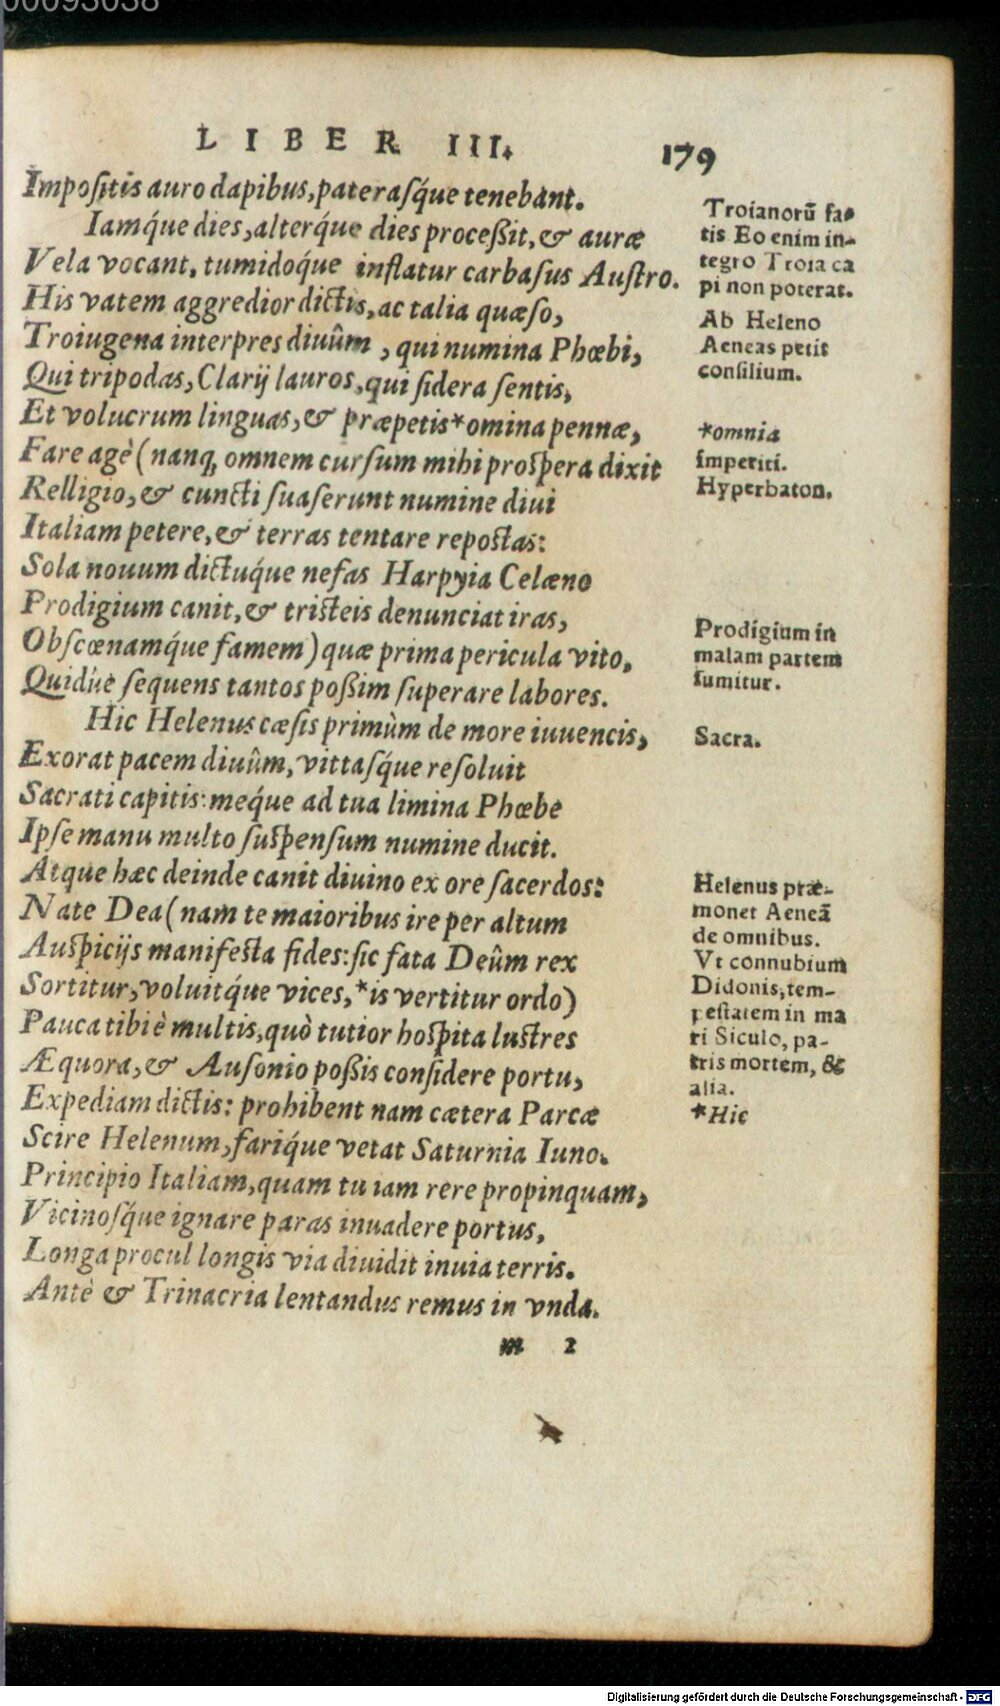 00093038
LIBER III.
179
Impositis auro dapibus, paterasq́ue tenebant.
Iamq́ue dies, alterq́ue dies proceßit, & auræ
Vela vocant, tumidoq́ue inflatur carbasus Austro.
His vatem aggredior dictis, ac talia quæso,
Troiugena interpres diuûm , qui numina Phœbi,
Qui tripodas, Clarij lauros, qui sidera sentis,
Et volucrum linguas, & præpetis *omina pennæ,
Fare agè (nanq, omnem cursum mihi prospera dixit
Relligio, & cuncti suaserunt numine diui
Italiam petere, & terras tentare repostas:
Sola nouum dictuq́ue nefas Harpyia Celæno
Prodigium canit, & tristeis denunciat iras,
Obscœnamq́ue famem) quæ prima pericula vito,
Quidúe sequens tantos poßim superare labores.
Hic Helenus cæsis primùm de more iuuencis,
Exorat pacem diuûm, vittasq́ue resoluit
Sacrati capitis: meq́ue ad tua limina Phœbe
Ipse manu multo suspensum numine ducit.
Atque hæc deinde canit diuino ex ore sacerdos:
Nate Dea (nam te maioribus ire per altum
Auspicijs manifesta fides: sic fata Deûm rex
Sortitur, voluitq́ue vices, *is vertitur ordo)
Pauca tibi è multis, quò tutior hospita lustres
Æquora, & Ausonio poßis considere portu,
Expediam dictis: prohibent nam cætera Parcæ
Scire Helenum, fariq́ue vetat Saturnia Iuno.
Principio Italiam, quam tu iam rere propinquam,
Vicinosq́ue ignare paras inuadere portus,
Longa procul longis via diuidit inuia terris.
Antè & Trinacria lentandus remus in vnda.
m 2
Troianorũ fa-
tis Eo enim in-
tegro Troia ca
pi non poterat.
Ab Heleno
Aeneas petit
consilium.
*omnia
imperiti.
Hyperbaton.
Prodigium in
malam partem
sumitur.
Sacra.
Helenus præ-
monet Aeneã
de omnibus.
Vt connubium
Didonis, tem-
pestatem in ma
ri Siculo, pa-
tris mortem, &
alia.
*Hic
Digitalisierung gefördert durch die Deutsche Forschungsgemeinschaft - DFG